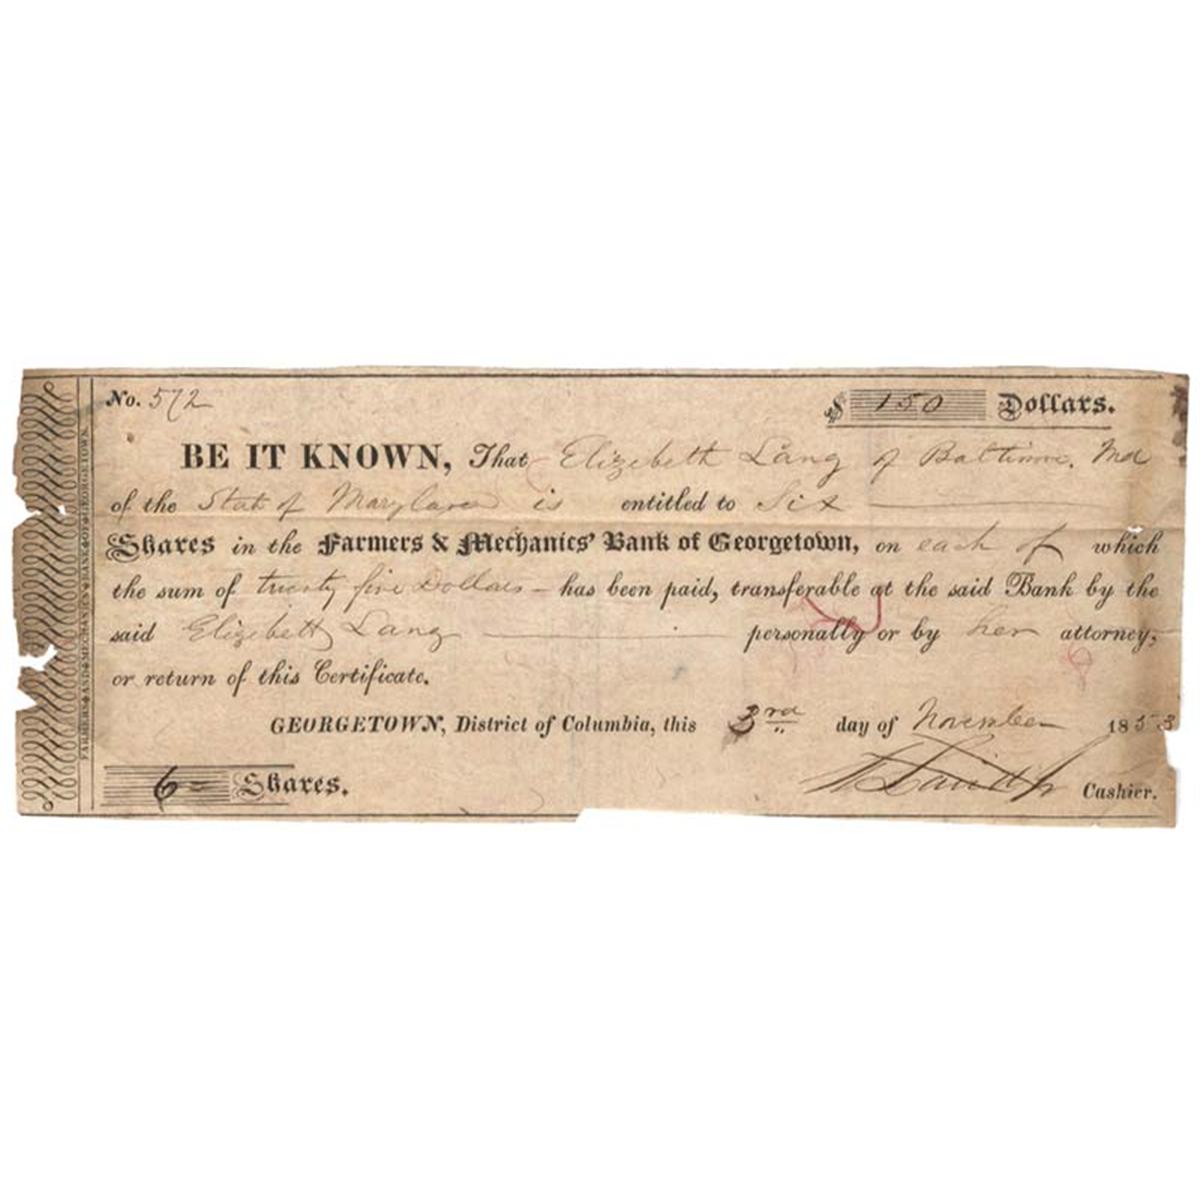 No. 572
$ 150 Dollars.
BE IT KNOWN, That Elizebeth Lang of Baltimore. Md
of the State of Maryland is entitled to Six
Shares in the Farmers & Mechanics' Bank of Georgetown, on each of which
the sum of twenty five Dollars - has been paid, transferable at the said Bank by the
said Elizebeth Lang personally or by her attorney,
or return of this Certificate.
GEORGETOWN, District of Columbia, this 3rd day of November 1853
6 Shares.
Cashier.
FARMERS AND MECHANICS BANK OF GEORGETOWN.